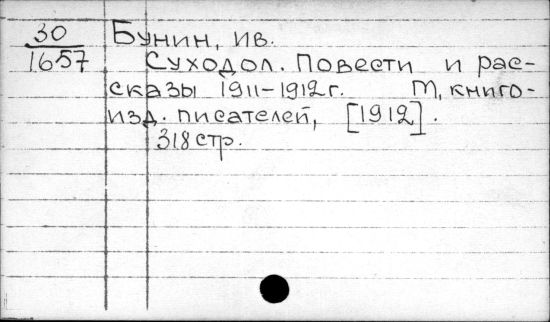 30
1657
Бунин, Ив.
Суходол. Повести и рас-
сказы 1911-1912 г. М, книго-
изд. писателей, [1912].
318 стр.